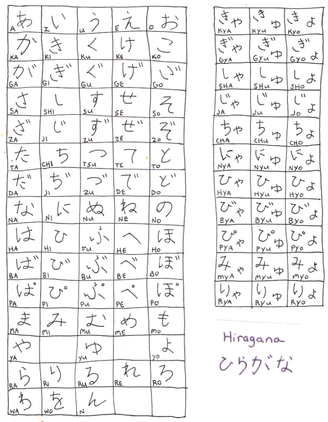 あ い う え お
A I U E O
か き く け こ
KA KI KU KE KO
が ぎ ぐ げ ご
GA GI GU GE GO
さ し す せ そ
SA SHI SU SE SO
ざ じ ず ぜ ぞ
ZA JI ZU ZE ZO
た ち つ て と
TA CHI TSU TE TO
だ ぢ づ で ど
DA JI ZU DE DO
な に ぬ ね の
NA NI NU NE NO
は ひ ふ へ ほ
HA HI FU HE HO
ば び ぶ べ ぼ
BA BI BU BE BO
ぱ ぴ ぷ ぺ ぽ
PA PI PU PE PO
ま み む め も
MA MI MU ME MO
や ゆ よ
YA YU YO
ら り る れ ろ
RA RI RU RE RO
わ を ん
WA WO N
きゃ きゅ きょ
KYA KYU KYO
ぎゃ ぎゅ ぎょ
GYA GYU GYO
しゃ しゅ しょ
SHA SHU SHO
じゃ じゅ じょ
JA JU JO
ちゃ ちゅ ちょ
CHA CHU CHO
にゃ にゅ にょ
NYA NYU NYO
ひゃ ひゅ ひょ
HYA HYU HYO
びゃ びゅ びょ
BYA BYU BYO
ぴゃ ぴゅ ぴょ
PYA PYU PYO
みゃ みゅ みょ
MYA MYU MYO
りゃ りゅ りょ
RYA RYU RYO
Hiragana
ひらがな